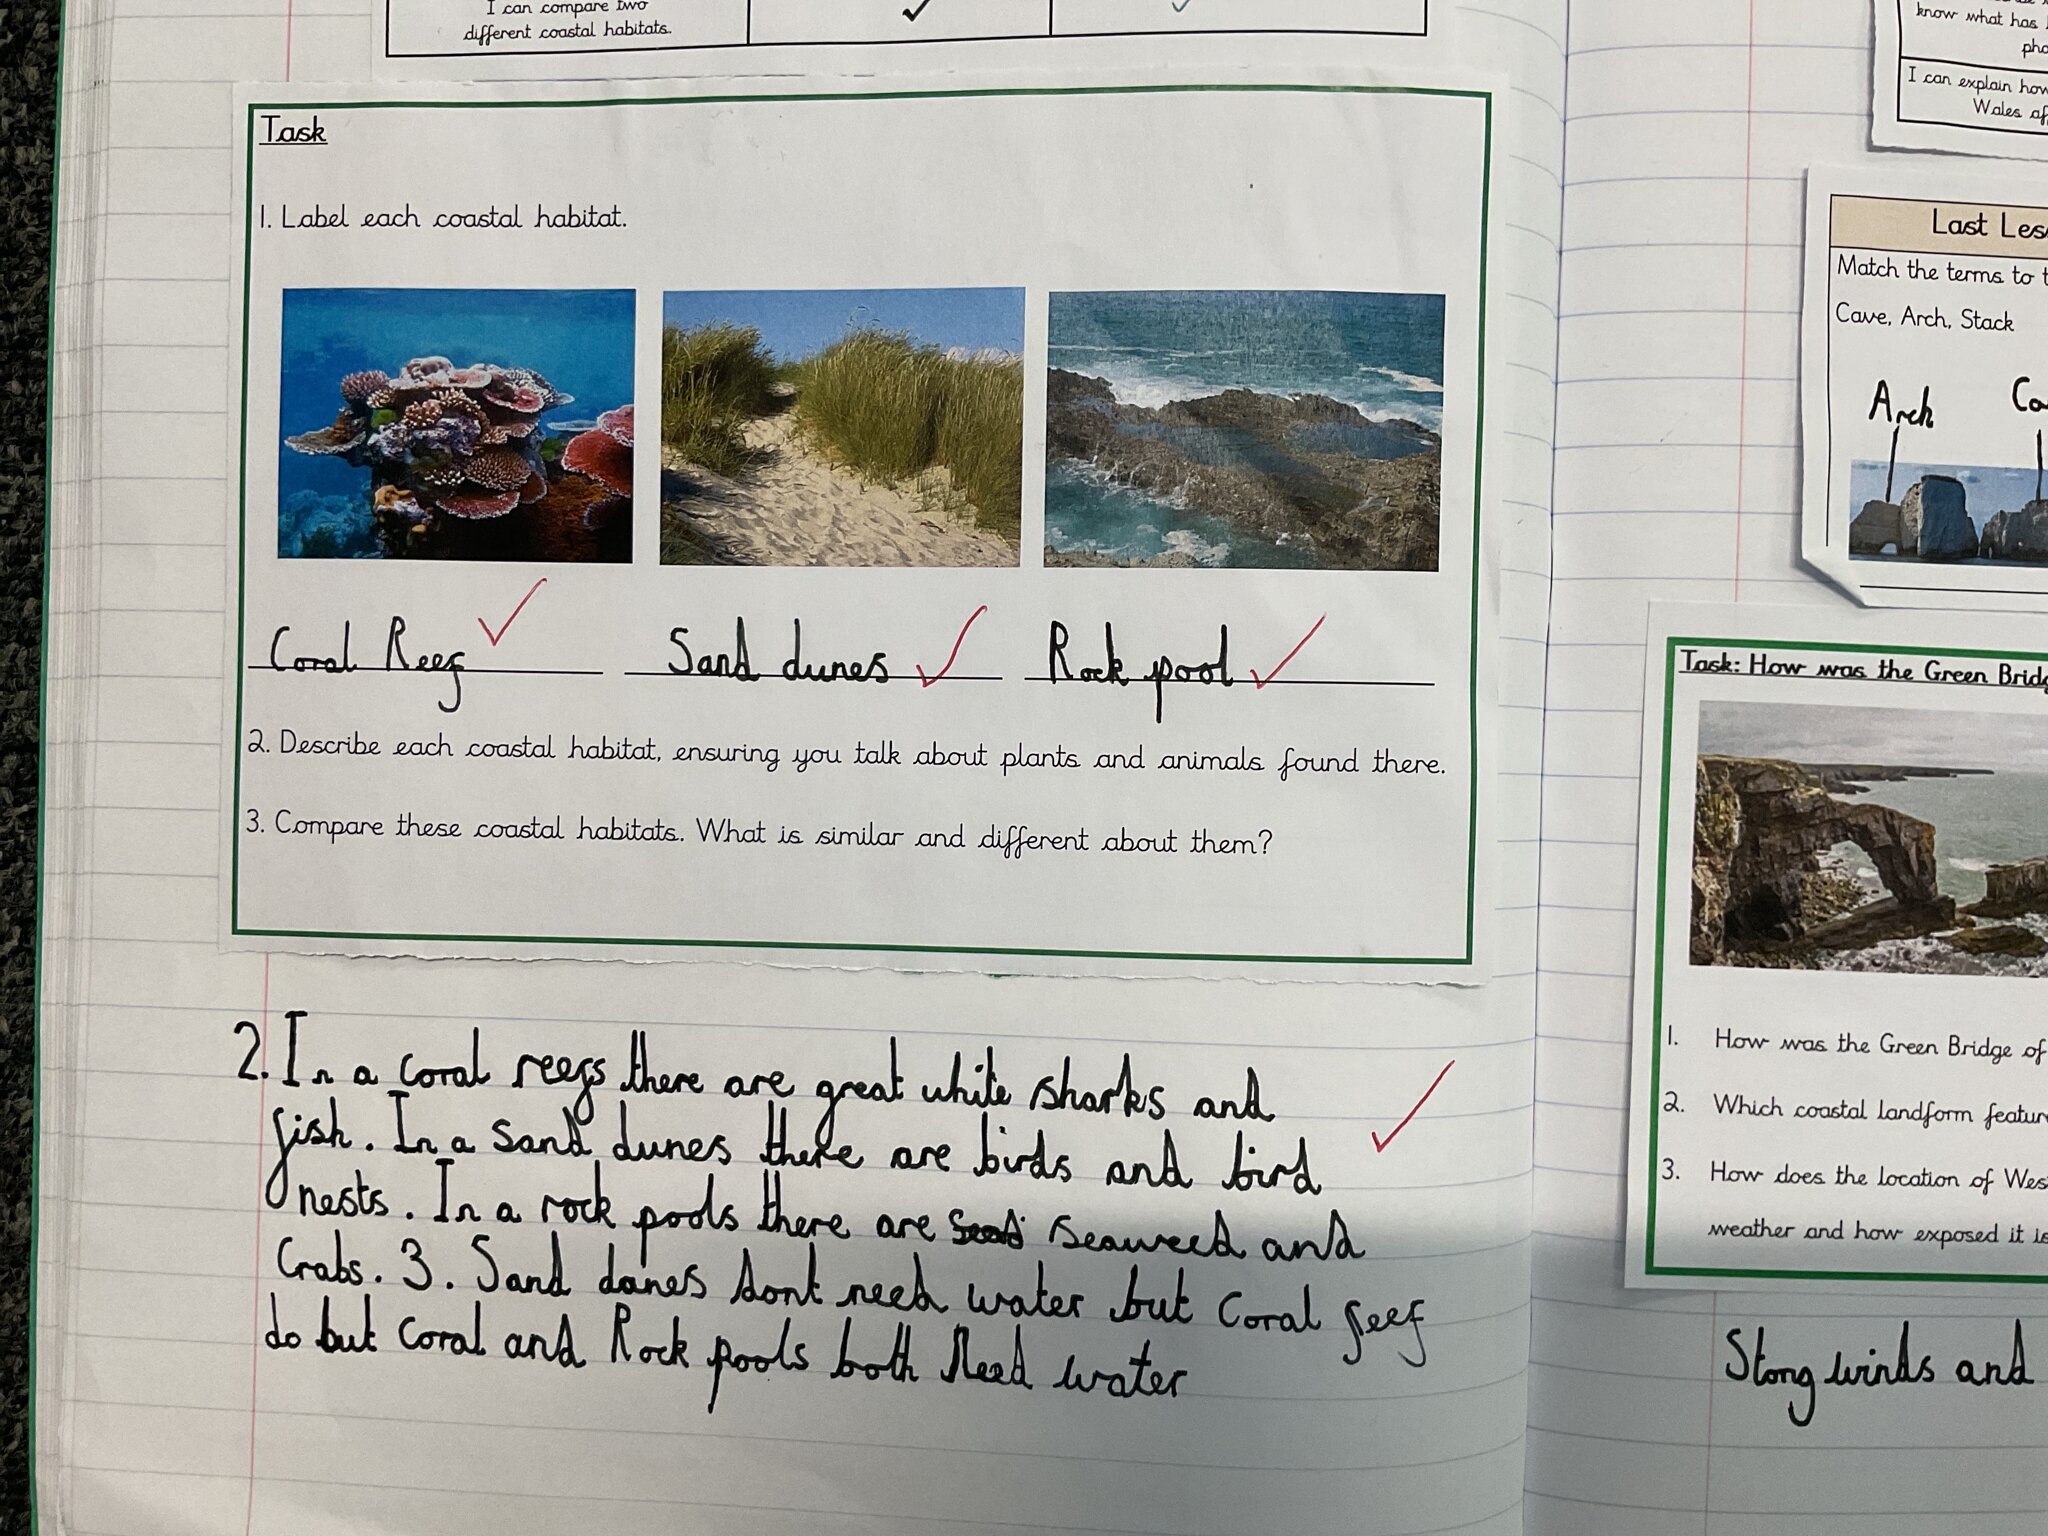 I can compare two
different coastal habitats.
Task
1. Label each coastal habitat.
Coral Reef
Sand dunes
Rock pool
2. Describe each coastal habitat, ensuring you talk about plants and animals found there.
3. Compare these coastal habitats. What is similar and different about them?
2. In a coral reefs there are great white sharks and
fish. In a sand dunes there are birds and bird
nests. In a rock pools there are seaweed and
Crabs. 3. Sand danes dont need water but Coral Reef
do but Coral and Rock pools both Need water
know what has
I can explain how
Wales
Last
Match the terms to
Cave, Arch, Stack
Arch
Task: How was the Green
1. How was the Green Bridge of
2. Which coastal landform
3. How does the location of
weather and how exposed it is
Stong winds and